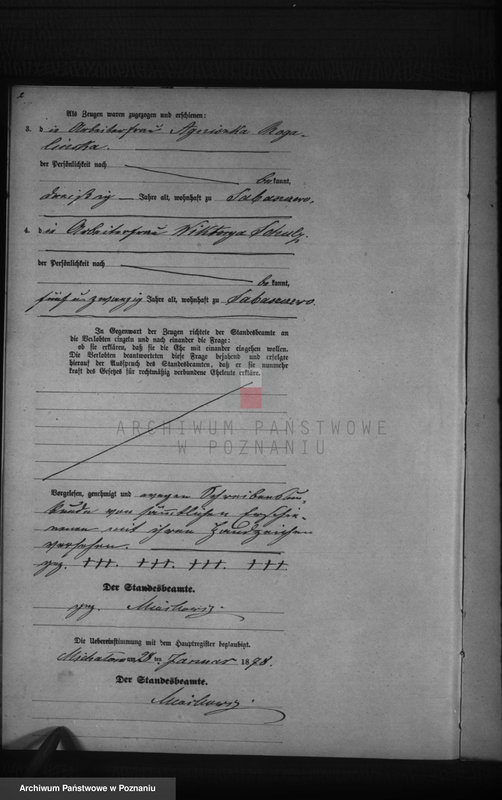 2
Als Zeugen waren zugezogen und erschienen:
3. die Arbeiterfrau Agnieszka Roga-
linska.
der Persönlichkeit nach
bekannt,
dreißig Jahre alt, wohnhaft zu Tabanowo.
4. die Arbeiterfrau Wiktorya Schulz.
der Persönlichkeit nach
bekannt,
fünf u. zwanzig Jahre alt, wohnhaft zu Tabanowo.
In Gegenwart der Zeugen richtete der Standesbeamte an
die Verlobten einzeln und nach einander die Frage:
ob sie erklären, daß sie die Ehe mit einander eingehen wollen.
Die Verlobten beantworteten diese Frage bejahend und erfolgte
hierauf der Ausspruch des Standesbeamten, daß er sie nunmehr
kraft des Gesetzes für rechtmäßig verbundene Eheleute erkläre.
ARCHIWUM PAŃSTWOWE
W POZNANIU
Vorgelesen, genehmigt und wegen Schreibensun-
kunde von sämtlichen Erschie-
nenen mit ihren Handzeichen
versehen.
gez. +++. +++. +++. +++.
Der Standesbeamte.
gez.
Die Uebereinstimmung mit dem Hauptregister beglaubigt.
am 28 ten Januar 1878.
Der Standesbeamte.
Archiwum Państwowe w Poznaniu